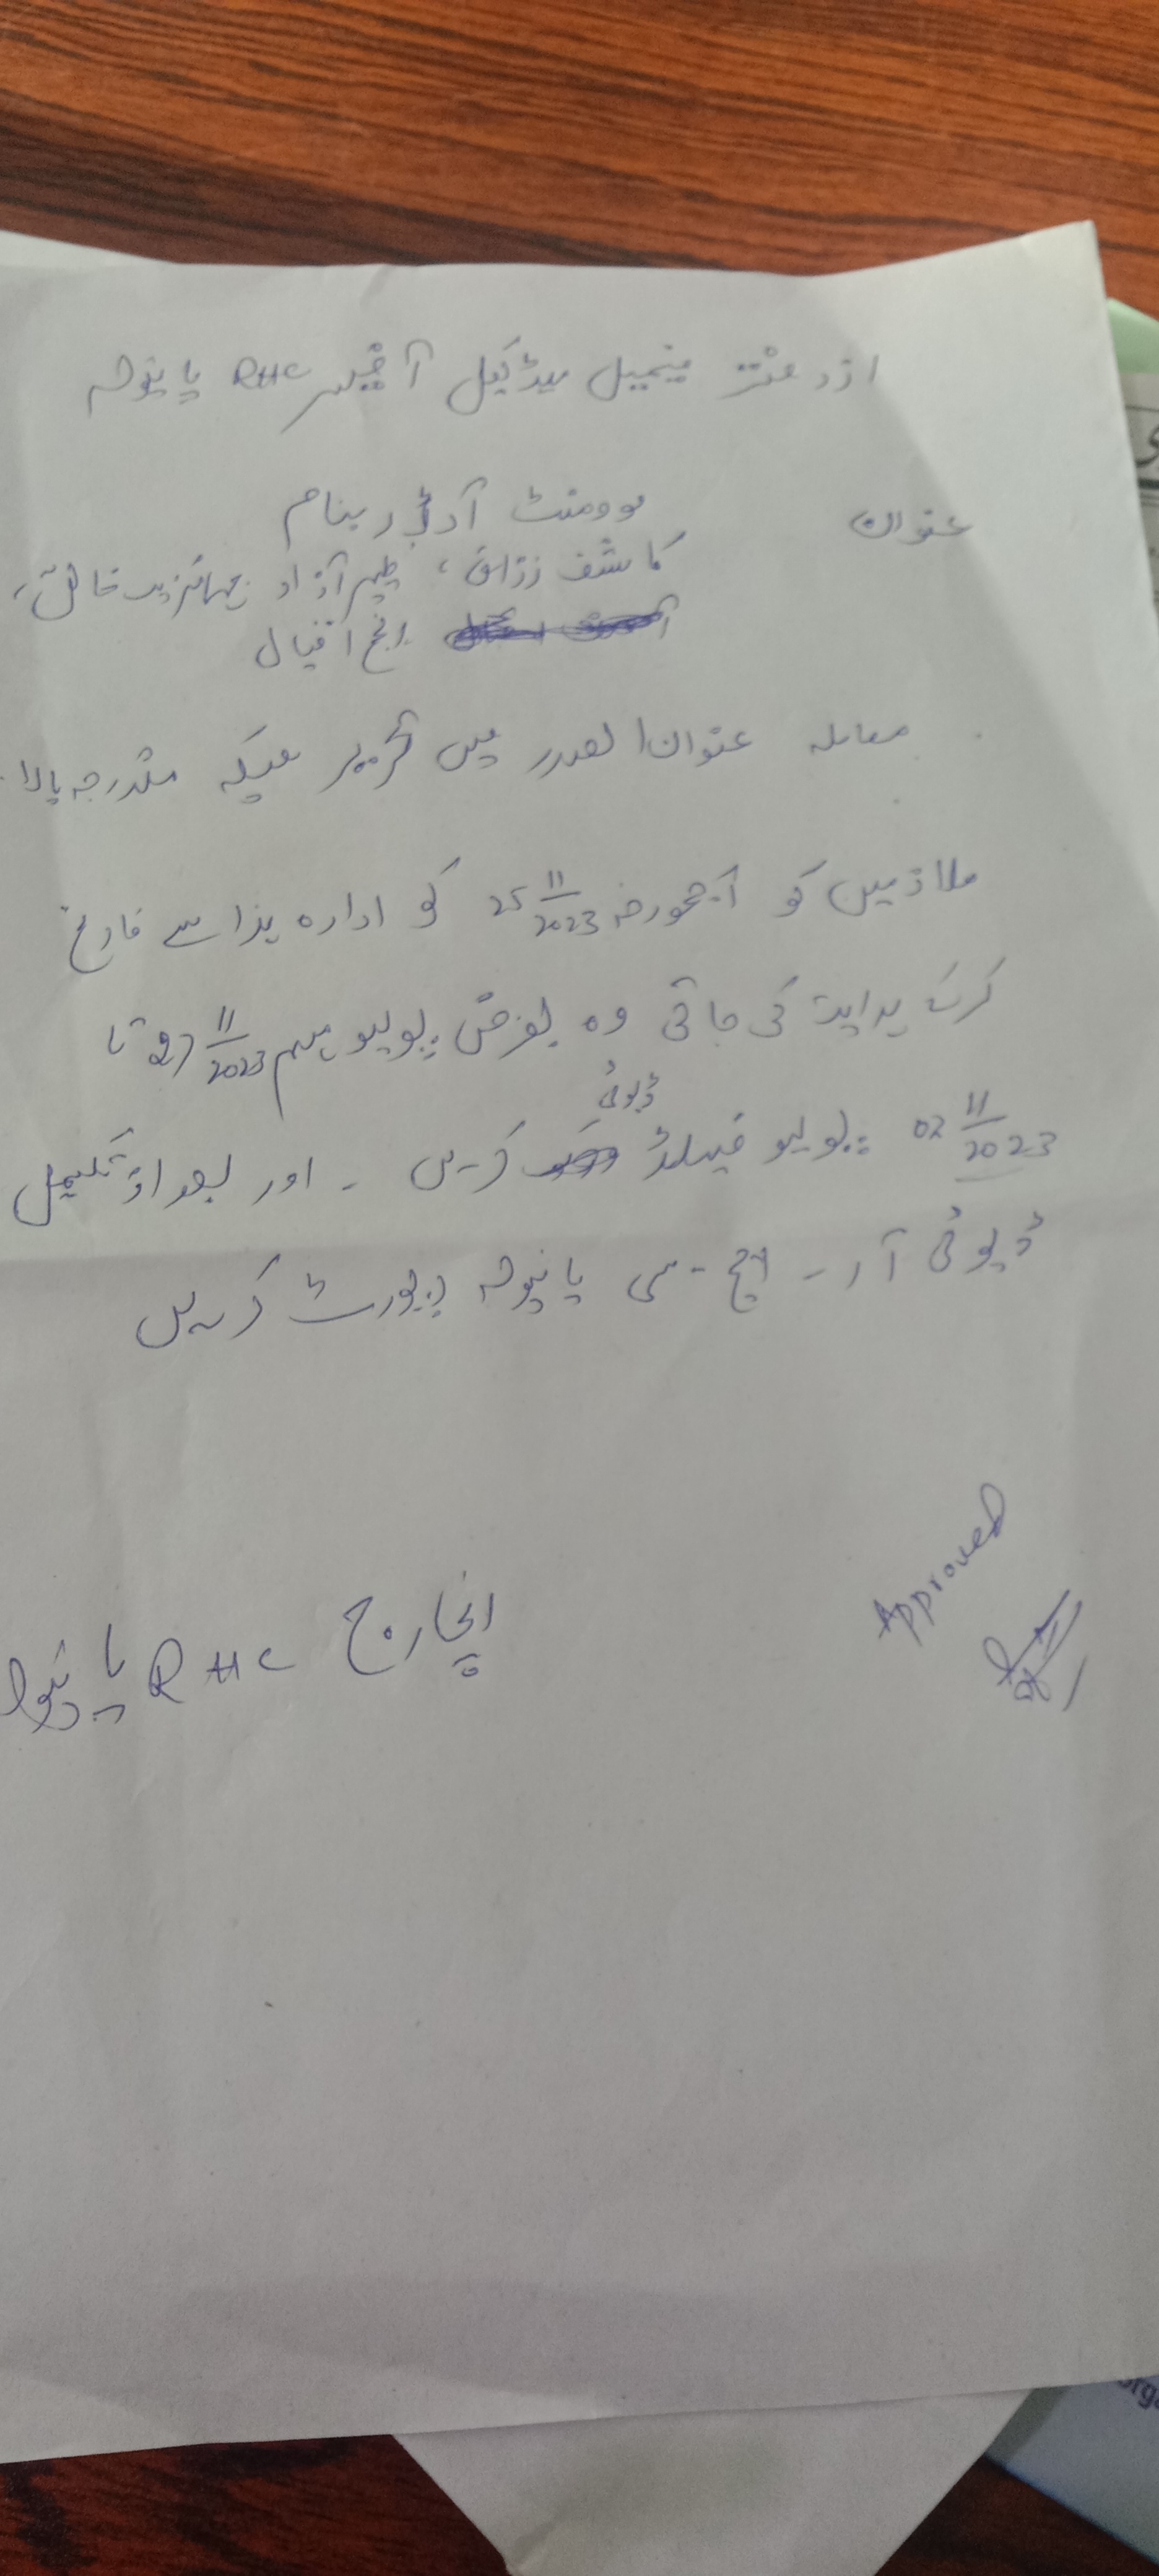 از دفتر میڈیکل آفیسر RHC پانیولہ
عنوان موومنٹ آرڈر بنام
کاشف رزاق، ظہیر آزاد جہانزیب خالق،
انجم اقبال
معاملہ عنوان الصدر میں تحریر ھیکہ مندرجہ بالا
ملازمین کو آجمورخہ 25 11/2023 کو ادارہ ہذا سے فارغ
کر کے ہدایت کی جاتی وہ بغرض پولیو مہم 27 11/2023 تا
02 11/2023 پولیو فیلڈ ڈیوٹی کریں ۔ اور بعد از تکمیل
ڈیوٹی آر ۔ ایچ ۔ سی پانیولہ رپورٹ کریں
Approved
انچارج RHC پانیولہ